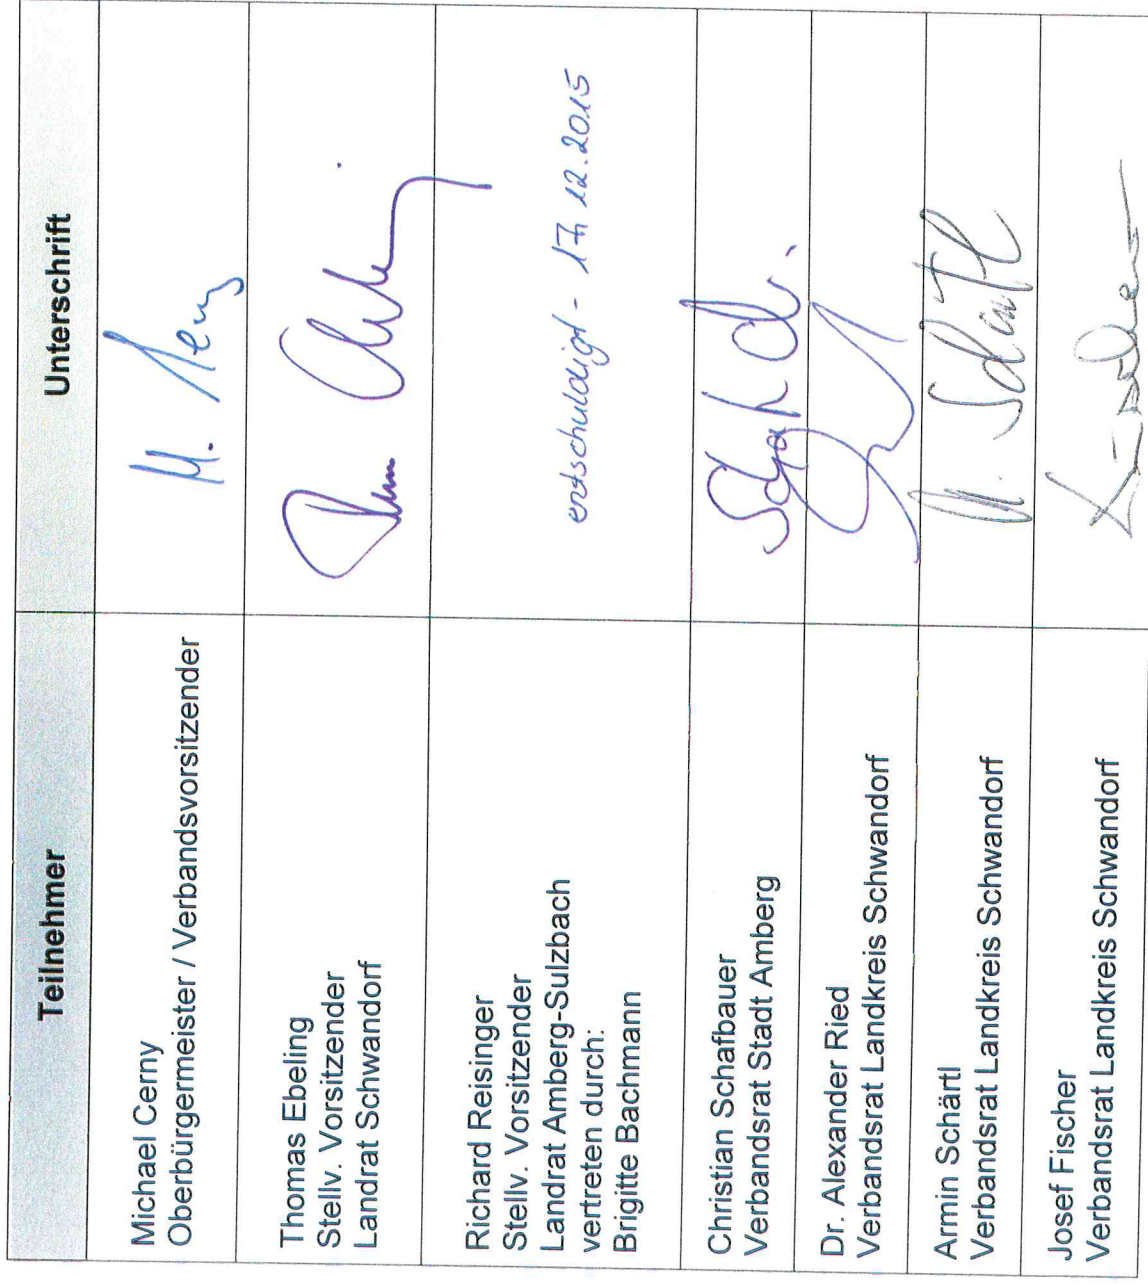 Teilnehmer
Unterschrift
Michael Cerny
Oberbürgermeister / Verbandsvorsitzender
Thomas Ebeling
Stellv. Vorsitzender
Landrat Schwandorf
Richard Reisinger
Stellv. Vorsitzender
Landrat Amberg-Sulzbach
vertreten durch:
Brigitte Bachmann
entschuldigt - 17.12.2015
Christian Schafbauer
Verbandsrat Stadt Amberg
Dr. Alexander Ried
Verbandsrat Landkreis Schwandorf
Armin Schärtl
Verbandsrat Landkreis Schwandorf
Josef Fischer
Verbandsrat Landkreis Schwandorf